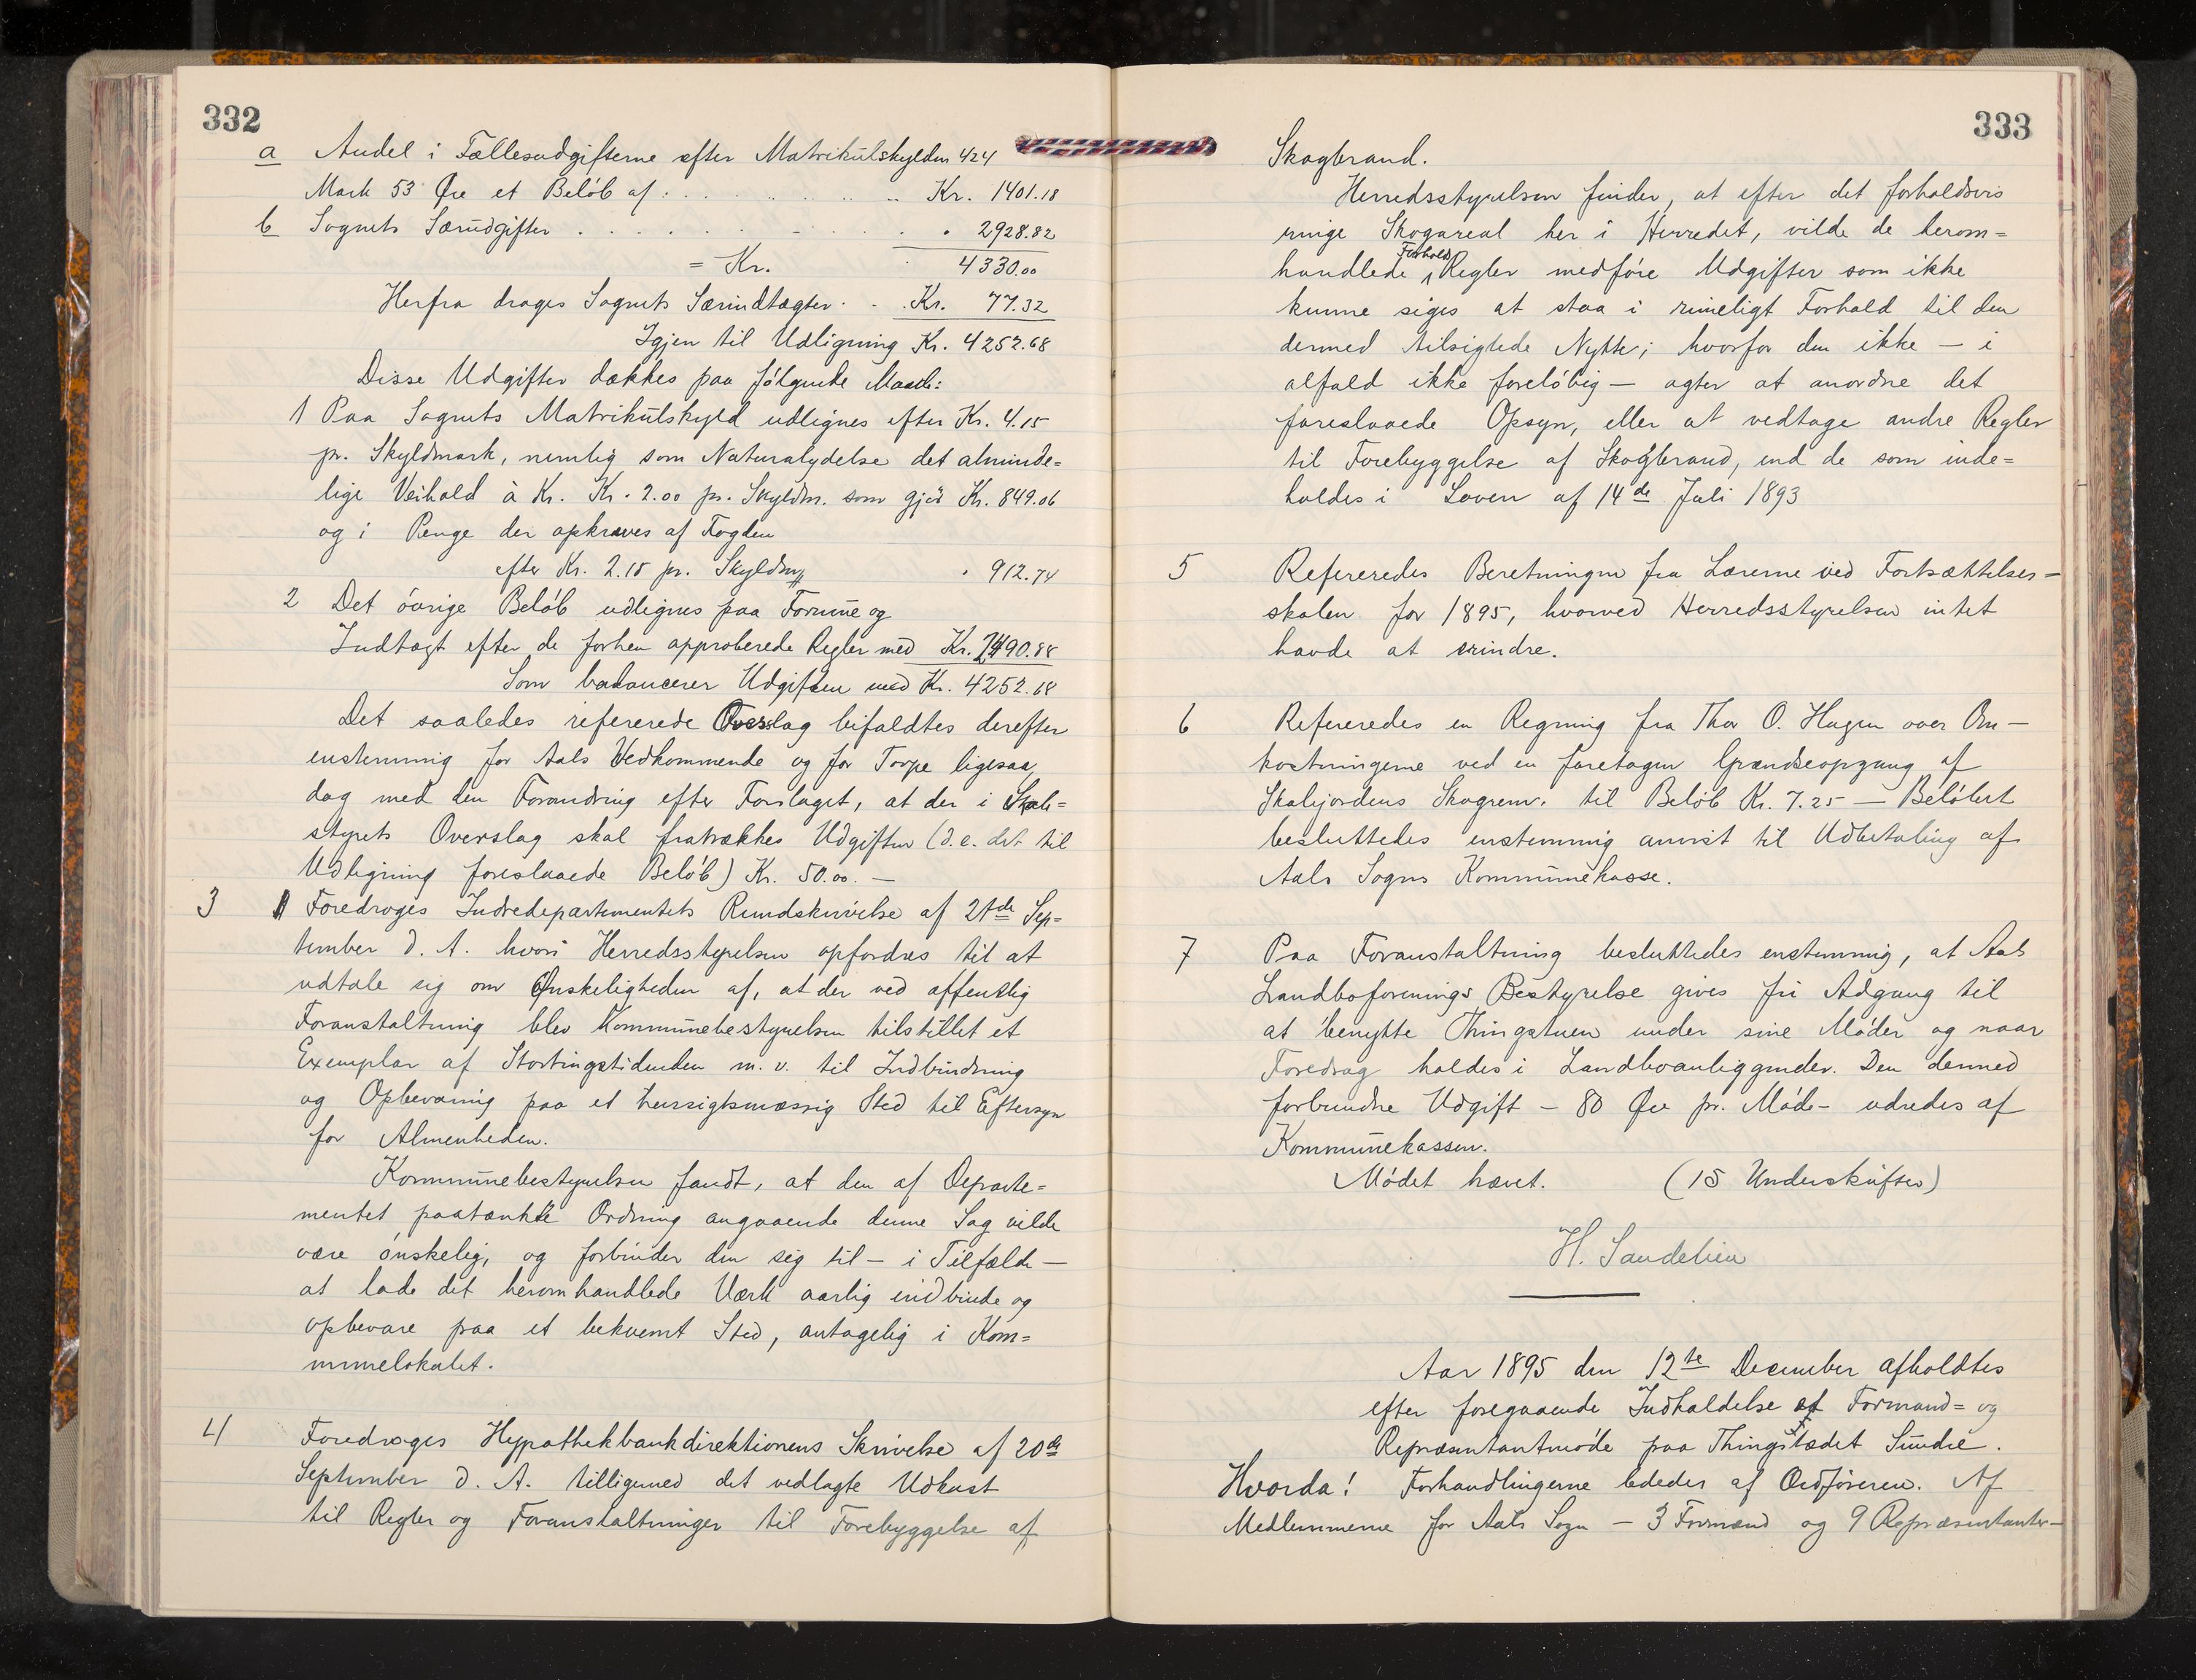 332
a Andel i Fællesudgifterne efter Matrikulskylden 424
Mark 53 Øre et Beløb af . . . . . . . Kr. 1401.18
b Sognets Særudgifter . . . . . . . . 2928.82
= Kr. 4330.00
Herfra drages Sognets Særindtægter . . Kr. 77.32
Igjen til Udligning Kr. 4252.68
Disse Udgifter dækkes paa følgende Maade:
1 Paa Sognets Matrikulskyld udlignes efter Kr. 4.15
pr. Skyldmark, nemlig som Naturalydelse det alminde=
lige Veihold à Kr. Kr. 2.00 pr. Skyldm. som gjør Kr. 849.06
og i Penge der opkræves af Fogden
efter Kr. 2.15 pr. Skyldm. 912.74
2 Det øvrige Beløb udlignes paa Formue og
Indtægt efter de forhen approberede Regler med Kr. 2490.88
Som balancerer Udgiften med Kr. 4252.68
Det saaledes refererede Overslag bifaldtes derefter
enstemmig for Aals Vedkommende og for Torpe ligesaa,
dog med den Forandring efter Forslaget, at der i Skole=
styrets Overslag skal fratrækkes Udgiften (d.e. det til
Udligning foreslaaede Beløb) Kr. 50.00. —
3 Foredroges Indredepartementets Rundskrivelse af 21de Sep=
tember d. A. hvori Herredsstyrelsen opfordres til at
udtale sig om Ønskeligheden af, at der ved offentlig
Foranstaltning blev Kommunebestyrelsen tilstillet et
Exemplar af Stortingstidenden m. v. til Indbindning
og Opbevaring paa et hensigtsmæssig Sted til Eftersyn
for Almenheden.
Kommunebestyrelsen fandt, at den af Departe=
mentet paatænkte Ordning angaaende denne Sag vilde
være ønskelig, og forbinder den sig til — i Tilfælde —
at lade det heromhandlede Værk aarlig indbinde og
opbevare paa et bekvemt Sted, antagelig i Kom=
munelokalet.
4 Foredroges Hypothekbankdirektionens Skrivelse af 20de
September d. A. tilligemed det vedlagte Udkast
til Regler og Foranstaltninger til Forebyggelse af
333
Skogbrand.
Herredsstyrelsen finder, at efter det forholdsvis
ringe Skogareal her i Herredet, vilde de herom=
handlede Forholds Regler medføre Udgifter som ikke
kunne siges at staa i rimeligt Forhold til den
dermed tilsigtede Nytte; hvorfor den ikke — i
alfald ikke foreløbig — agter at anordne det
foreslaaede Opsyn, eller at vedtage andre Regler
til Forebyggelse af Skogbrand, end de som inde=
holdes i Loven af 14de Juli 1893
5 Refereredes Beretningen fra Lærerne ved Fortsættelses—
skolen for 1895, hvorved Herredsstyrelsen intet
havde at erindre.
6 Refereredes en Regning fra Thor O. Hagen over Om—
kostningerne ved en foretagen Grændseopgang af
Skolejordens Skogrem. til Beløb Kr. 7.25 — Beløbet
besluttedes enstemmig anvist til Udbetaling af
Aals Sogns Kommunekasse.
7 Paa Foranstaltning besluttedes enstemmig, at Aals
Landboforenings Bestyrelse gives fri Adgang til
at benytte Thingstuen under sine Møder og naar
Foredrag holdes i Landboanliggender. Den dermed
forbundne Udgift — 80 Øre pr. Møde — udredes af
Kommunekassen.
Mødet hævet. (15 Underskrifter)
H. Sandelien
Aar 1895 den 12te December afholdtes
efter foregaaende Indkaldelse af Formand= og
Repræsentantmøde paa Thingstedet Sundre.
Hvorda! Forhandlingerne lededes af Ordføreren. Af
Medlemmerne for Aals Sogn — 3 Formænd og 9 Repræsentanter—